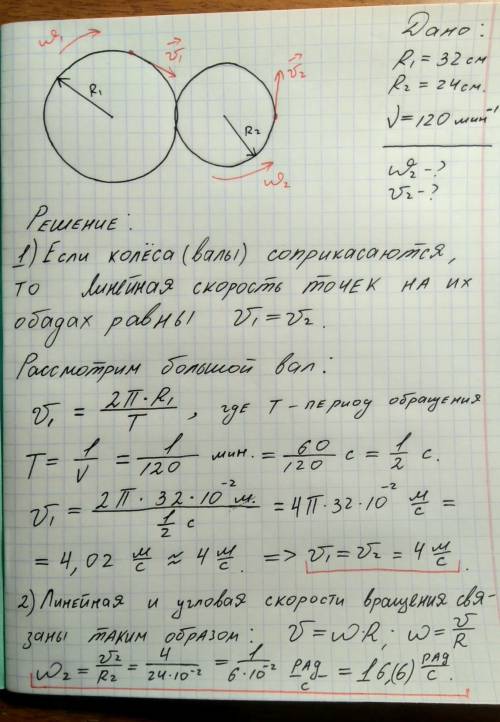 ω₁
v⃗₁
v⃗₂
R₁
R₂
ω₂
Дано:
R₁ = 32 см
R₂ = 24 см.
ν = 120 мин⁻¹
ω₂ - ?
v₂ - ?
Решение:
1) Если колёса (валы) соприкасаются,
то линейная скорость точек на их
ободах равны v₁ = v₂.
Рассмотрим большой вал:
v₁ = 2π·R₁/T, где T - период обращения
T = 1/ν = 1/120 мин. = 60/120 с = 1/2 с.
v₁ = 2π·32·10⁻² м./(1/2 с) = 4π·32·10⁻² м/с =
= 4,02 м/с ≈ 4 м/с. => v₁ = v₂ = 4 м/с.
2) Линейная и угловая скорости вращения свя-
заны таким образом: v = ω·R; ω = v/R
ω₂ = v₂/R₂ = 4/24·10⁻² = 1/6·10⁻² рад/с = 16,(6) рад/с.